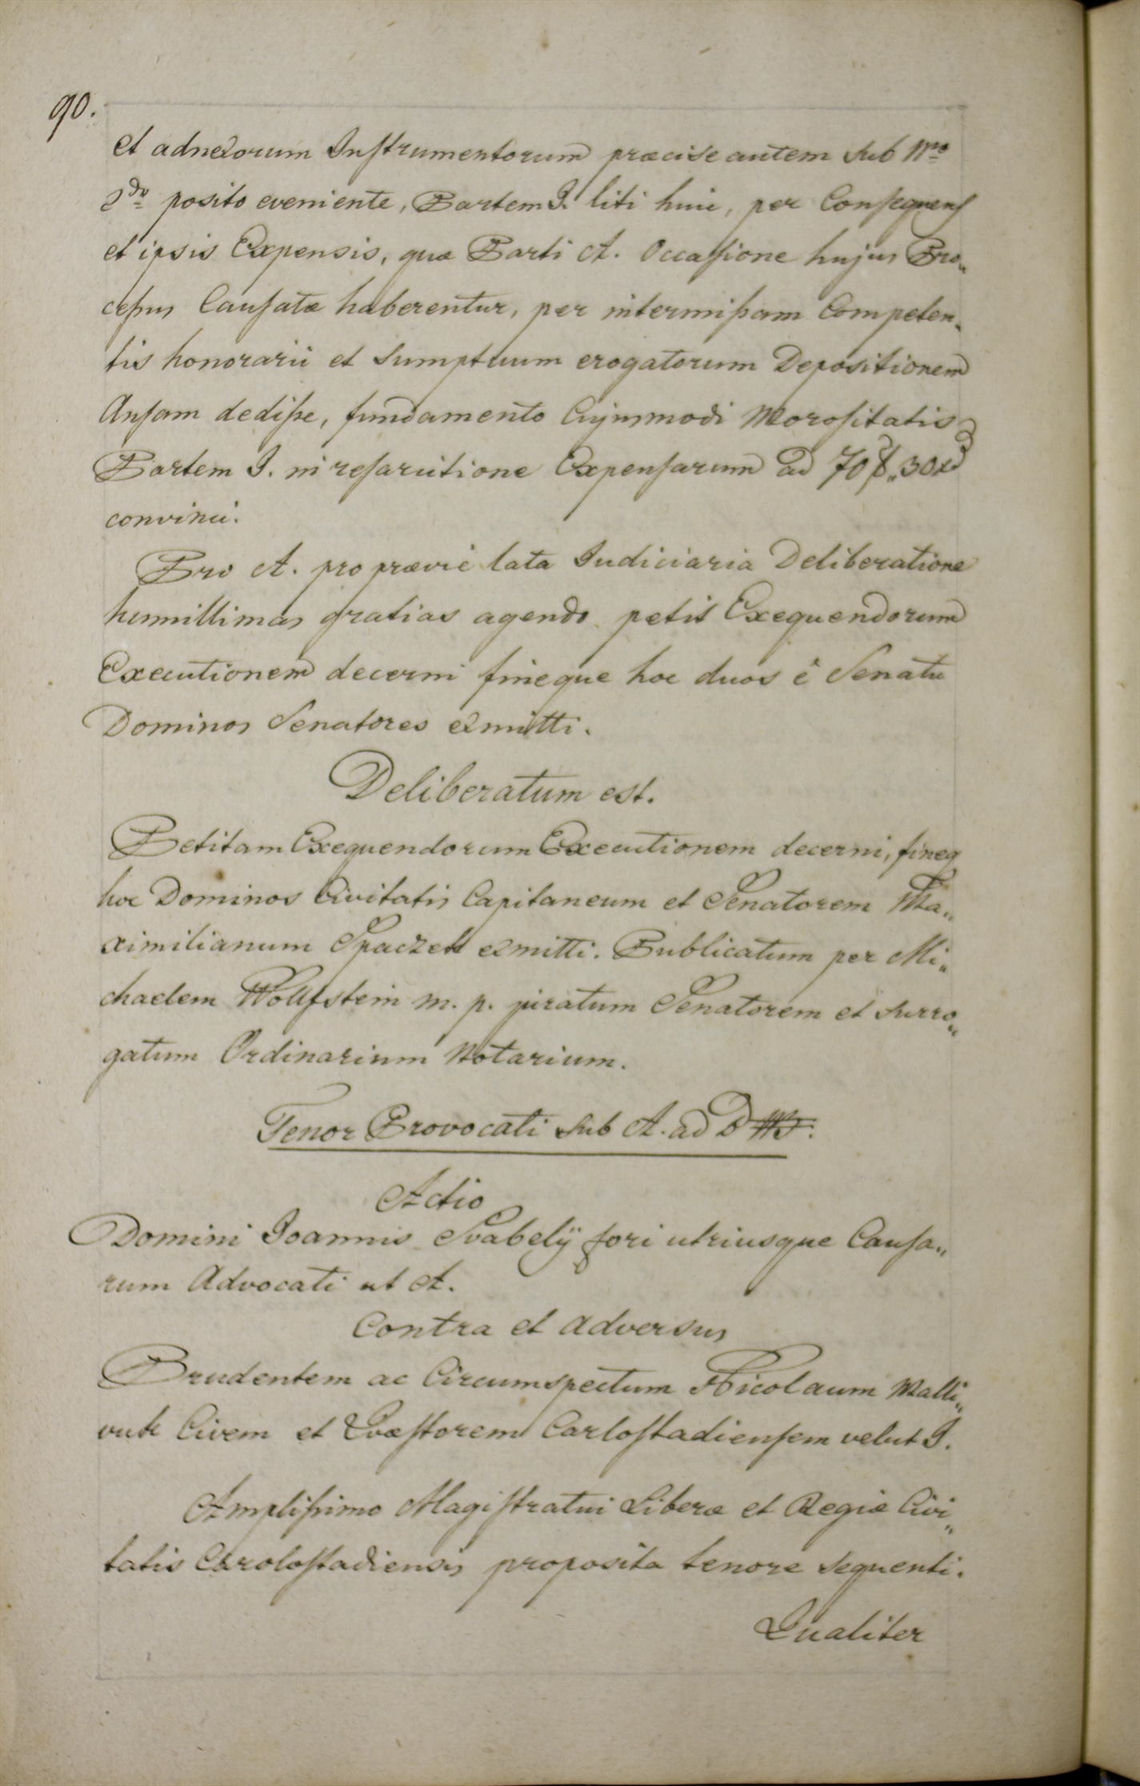 90.
et adnexorum Instrumentorum præcise autem sub Nro
2do posito eveniente, Partem I. liti huic, per Consequens
et ipsis Expensis, quæ Parti A. Occasione hujus Pro„
cessus Causatæ haberentur, per intermissam Competen„
tis honorarii et Sumptuum erogatorum Depositionem
Ansam dedisse, fundamento Cujusmodi Morositatis
Partem I. in resarcitione Expensarum ad 70 f„ 30 xd
convinci.
Pro A. pro prævie lata Judiciaria Deliberatione
humillimas gratias agendo petit Exequendorum
Executionem decerni fineque hoc duos è Senatu
Dominos Senatores exmitti.
Deliberatum est.
Petitam Exequendorum Executionem decerni, fineq
hoc Dominos Civitatis Capitaneum et Senatorem Ma„
ximilianum Spaczek exmitti. Publicatum per Mi„
chaelem Wolfstein m. p. juratum Senatorem et surro„
gatum Ordinarium Notarium.
Tenor Provocati sub A. ad D
Actio
Domini Joannis Svabelÿ fori utriusque Causa„
rum Advocati ut A.
Contra et adversus
Prudentem ac Circumspectum Nicolaum Malli„
vuk Civem et Quæstorem Carlostadiensem velut I.
Amplissimo Magistratui Liberæ et Regiæ Civi„
tatis Carolostadiensis proposita tenore sequenti.
Qualiter